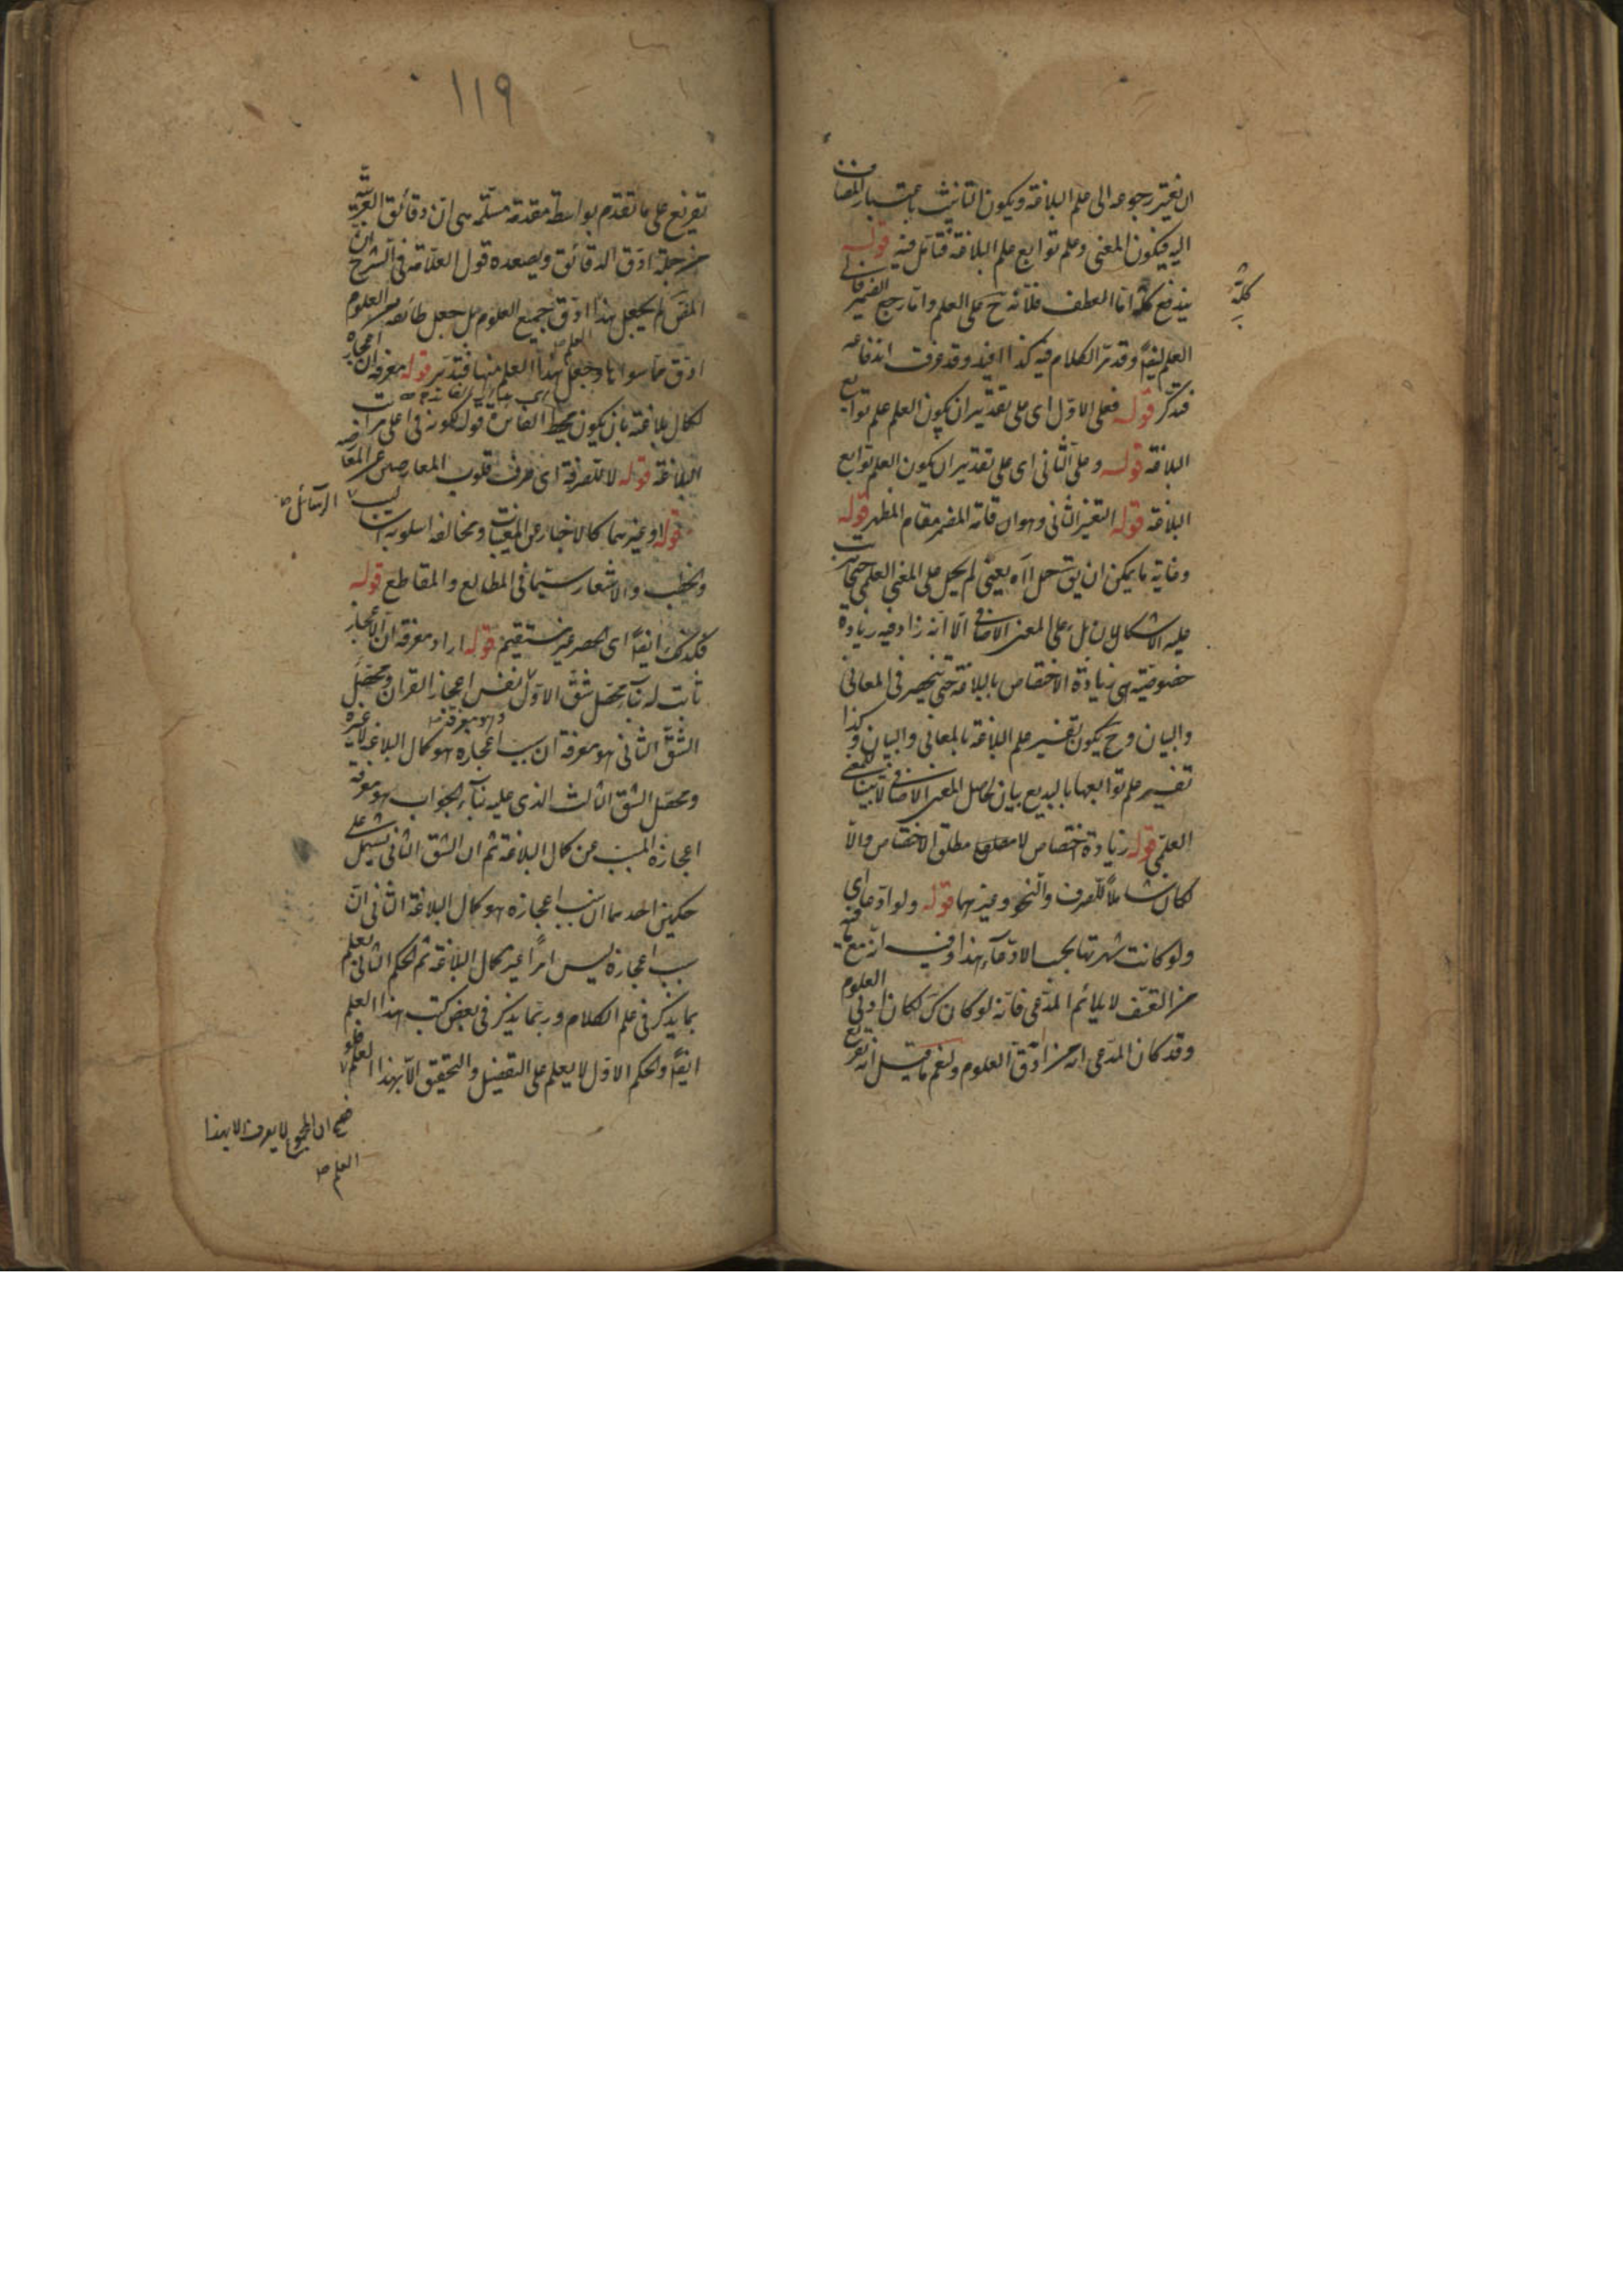 ان يعتبر رجوعه الى علم البلاغة ويكون التانيث باعتبار المضاف
اليه فيكون المعنى وعلم توابع علم البلاغة فتامل فيه قوله
يندفع كله اما العطف فلانه ح على العلم واما رجع الضمير فالى
كله
العلم ايضا وقد مر الكلام فيه كذا افيد وقد عرفت اندفاعه
فتذكر قوله فعلى الاول اى على تقدير ان يكون العلم علم توابع
البلاغة قوله وعلى الثانى اى على تقدير ان يكون العلم توابع
البلاغة قوله التغير الثانى وهو ان اقامة المضمر مقام المظهر قوله
وغاية ما يمكن ان يتمحل اه يعنى لم يحمل على المعنى العلمى حتى
عليه الاشكالان بل على المعنى الاضافى الا انه زاد فيه زيادة
خصوصية هى زيادة الاختصاص بالبلاغة حتى ينحصر فى المعانى
والبيان وح يكون تفسير علم البلاغة بالمعانى والبيان وكذا
تفسير علم توابعها بالبديع بيان لحاصل المعنى الاضافى لا بيانا للمعنى
العلمى قوله زيادة اختصاص لا مطلق الاختصاص والا
لكان شاملا للصرف والنحو وغيرهما قوله ولو ادعاء اى
ولو كانت شهرتها بحسب الادعاء هذا وفيه انه مع ما فيه
من التعسف لا يلائم المدعى فانه لو كان كك لكان ادق العلوم
وقد كان المدعى انه من ادق العلوم ولنعم ما قيل انه تفريع
١١٩
تفريع على ما تقدم بواسطة مقدمة مسلمة هى ان دقائق العربية
من جملة ادق الدقائق ويصعده قول العلامة فى الشرح ان
المص لم يجعل هذا ادق جميع العلوم بل جعل طائفة من العلوم
ادق مما سواها وجعل هذا العلم منها فتدبر قوله معرفة ان اعجازه
لكمال بلاغته بان يكون قوله لكونه فى اعلى مراتب
البلاغة قوله لا للصرفة اى صرف قلوب المعارضين عن المعارضة
قوله او غيرهما كالاخبار عن المغيبات ومخالفة اسلوبه اساليب
الرسائل
والخطب والاشعار سيما فى المطالع والمقاطع قوله
فكذلك ايضا اى الحصر غير مستقيم قوله اراد معرفة ان الاعجاز
ثابت له محصل شق الاول نفس اعجاز القران ومحصل
الشق الثانى هو معرفة ان سبب اعجازه هو كمال البلاغة لا غيره
ومحصل الشق الثالث الذى عليه بناء الجواب هو معرفة
اعجازه المسبب عن كمال البلاغة ثم ان الشق الثانى يشتمل على
حكمين احدهما ان سبب اعجازه هو كمال البلاغة الثانى ان
سبب اعجازه ليس امرا غير كمال البلاغة ثم الحكم الثانى يعلم
بما يذكر فى علم الكلام وربما يذكر فى بعض كتب هذا العلم
ايضا والحكم الاول لا يعلم على التفصيل والتحقيق الا بهذا العلم
ان المجموع لا يعرف الا بهذا
العلم صح